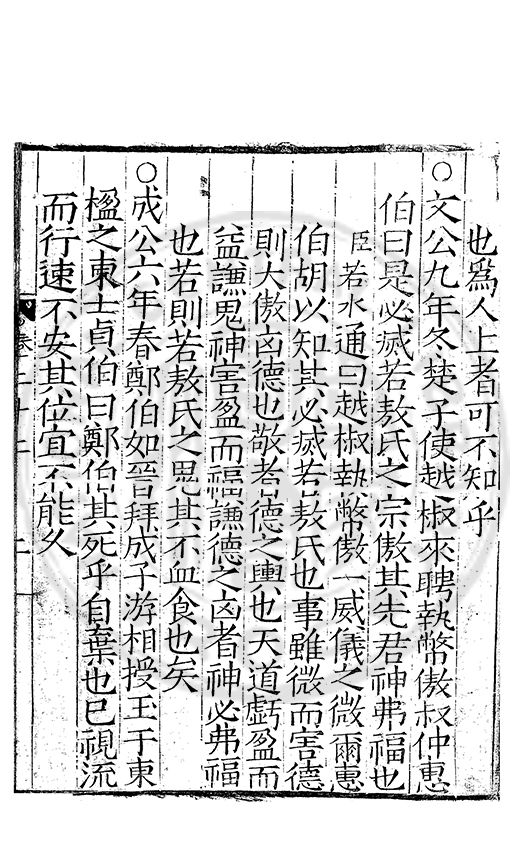 也為人上者可不知乎
○文公九年冬楚子使越椒來聘執幣傲叔仲惠
伯曰是必滅若敖氏之宗傲其先君神弗福也
臣若水通曰越椒執幣傲一威儀之微爾惠
伯胡以知其必滅若敖氏也事雖微而害德
則大傲凶德也敬者德之輿也天道虧盈而
益謙鬼神害盈而福謙德之凶者神必弗福
也若則若敖氏之鬼其不血食也矣
○成公六年春鄭伯如晉拜成子游相授玉于東
楹之東士貞伯曰鄭伯其死乎自棄也已視流
而行速不安其位宜不能久
卷二十二